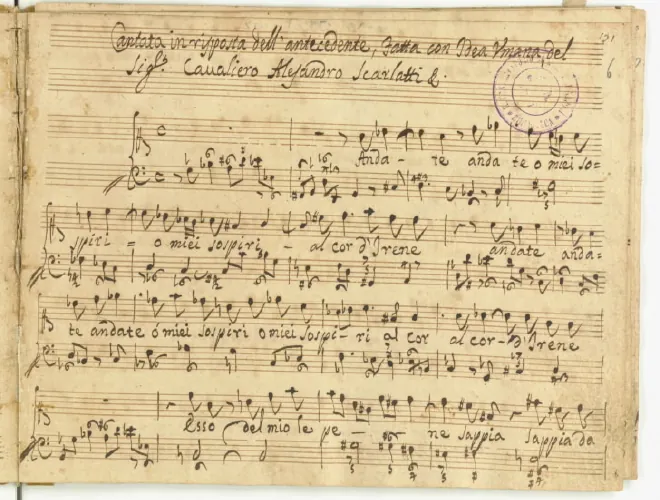 Cantata in risposta dell' antecedente, fatta con Idea Vmana, del
Sig.r Cavaliero Alessandro Scarlatti &.
Anda - te anda te o miei so=
spiri = o miei sospiri - al cor d'Irene andate anda=
te andate o miei sospiri o miei sospi - ri al cor al cor - d'Irene
Esso del mio le pe - ne sappia sappia da